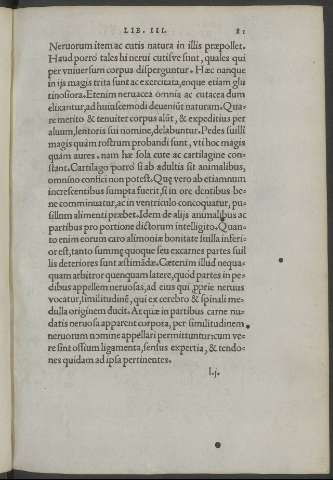 LIB. III. 81
Neruorum item ac cutis natura in illis præpollet.
Haud porro tales hi nerui cutisve sunt, quales qui
per vniuersum corpus disperguntur. Hæc nanque
in ijs magis trita sunt ac exercitata, enque etiam glu
tinosiora. Etenim neruacea omnia ac cutacea dum
elixantur, ad huiuscemodi deueniūt naturam. Qua-
re merito & tenuiter corpus alūt, & expeditius per
aluum, lentoris sui nomine, delabuntur. Pedes suilli
magis quàm rostrum probandi sunt, vti hoc magis
quàm aures. nam hæ sola cute ac cartilagine con-
stant. Cartilago porrò si ab adultis sit animalibus,
omnino confici non potest. Quę vero ab etiamnum
increscentibus sumpta fuerit, si in ore dentibus be-
ne comminuatur, ac in ventriculo concoquatur, pu-
sillum alimenti præbet. Idem de alijs animalibus ac
partibus pro portione dictorum intelligito. Quan-
to enim eorum caro alimoniæ bonitate suilla inferi-
or est, tanto summe quoque seu excarnes partes suil
lis deteriores sunt æstimādæ. Cæterùm illud nequa-
quam arbitror quenquam latere, quòd partes in pe-
dibus appellem neruosas, ad eius qui pprie neruus
vocatur, similitudinē, qui ex cerebro & spinali me-
dulla originem ducit. At quæ in partibus carne nu-
datis neruosa apparent corpora, per similitudinem
neruorum nomine appellari permittuntur: cum ve-
re sint ossium ligamenta, sensus expertia, & tendo-
nes quidam ad ipsa pertinentes.
l.j.